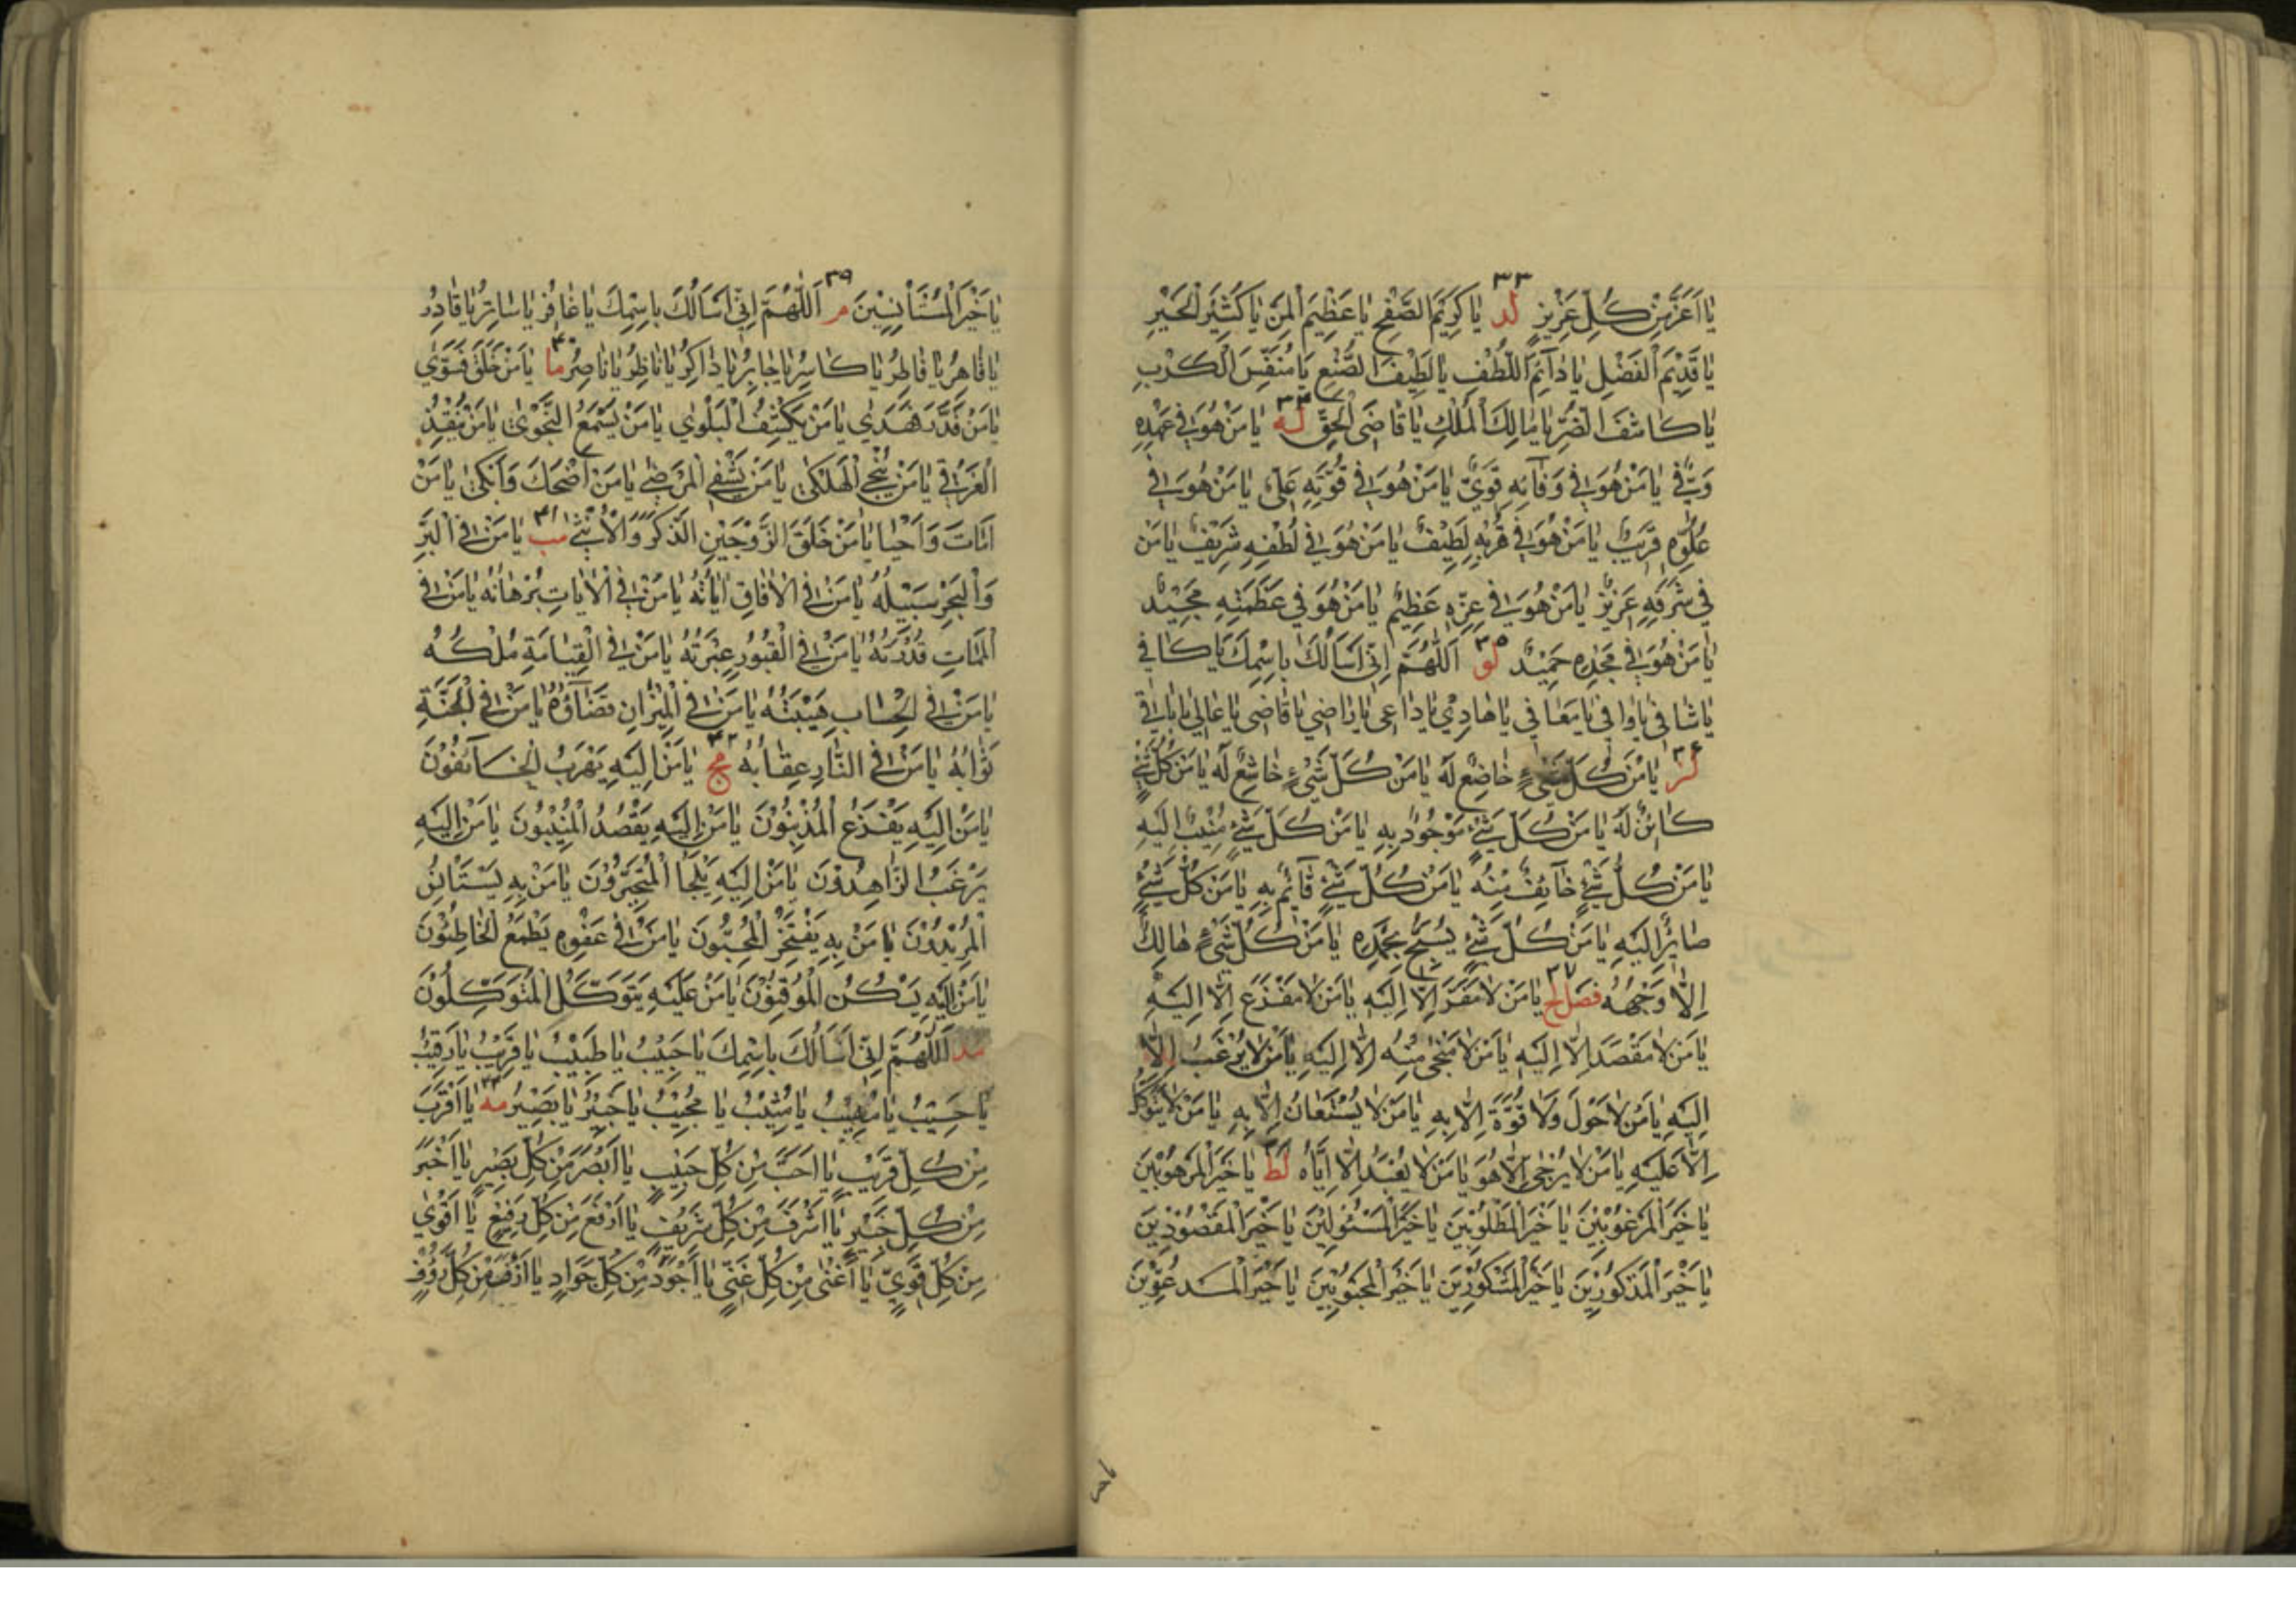 ٣٣
يَا اَعَزَّ مِنْ كُلِّ عَزِيزٍ لد يَا كَرِيْمَ الصَّفْحِ يَا عَظِيْمَ الْمَنِّ يَا كَثِيْرَ الْخَيْرِ
يَا قَدِيْمَ الْفَضْلِ يَا دَآئِمَ اللُّطْفِ يَا لَطِيْفَ الصُّنْعِ يَا مُنَفِّسَ الْكَرْبِ
٣٤
يَا كَاشِفَ الضُّرِّ يَا مَالِكَ الْمُلْكِ يَا قَاضِىَ الْحَقِّ له يَا مَنْ هُوَ فِي عَهْدِهِ
وَفِيٌّ يَا مَنْ هُوَ فِي وَفَآئِهِ قَوِيٌّ يَا مَنْ هُوَ فِي قُوَّتِهِ عَلِيٌّ يَا مَنْ هُوَ فِي
عُلُوِّهِ قَرِيْبٌ يَا مَنْ هُوَ فِي قُرْبِهِ لَطِيْفٌ يَا مَنْ هُوَ فِي لُطْفِهِ شَرِيْفٌ يَا مَنْ
فِي شَرَفِهِ عَزِيْزٌ يَا مَنْ هُوَ فِي عِزِّهِ عَظِيْمٌ يَا مَنْ هُوَ فِي عَظَمَتِهِ مَجِيْدٌ
٣٥
يَا مَنْ هُوَ فِي مَجْدِهِ حَمِيْدٌ لو اَللّٰهُمَّ اِنِّي اَسْاَلُكَ بِاسْمِكَ يَا كَافِي
يَا شَافِي يَا وَافِي يَا مُعَافِي يَا هَادِيْ يَا دَاعِى يَا رَاضِي يَا قَاضِى يَا عَالِي يَا بَاقِي
٣٦
لز يَا مَنْ كُلُّ شَيْءٍ خَاضِعٌ لَهُ يَا مَنْ كُلُّ شَيْءٍ خَاشِعٌ لَهُ يَا مَنْ كُلُّ شَيْءٍ
كَائِنٌ لَهُ يَا مَنْ كُلُّ شَيْءٍ مَوْجُودٌ بِهِ يَا مَنْ كُلُّ شَيْءٍ مُنِيْبٌ اِلَيْهِ
يَا مَنْ كُلُّ شَيْءٍ خَآئِفٌ مِنْهُ يَا مَنْ كُلُّ شَيْءٍ قَآئِمٌ بِهِ يَا مَنْ كُلُّ شَيْءٍ
صَائِرٌ اِلَيْهِ يَا مَنْ كُلُّ شَيْءٍ يُسَبِّحُ بِحَمْدِهِ يَا مَنْ كُلُّ شَيْءٍ هَالِكٌ
٣٧
اِلَّا وَجْهُهُ فصل لح يَا مَنْ لَا مَفَرَّ اِلَّا اِلَيْهِ يَا مَنْ لَا مَفْزَعَ اِلَّا اِلَيْهِ
يَا مَنْ لَا مَقْصَدَ اِلَّا اِلَيْهِ يَا مَنْ لَا مَنْجٰى مِنْهُ اِلَّا اِلَيْهِ يَا مَنْ لَا يُرْغَبُ اِلَّا
اِلَيْهِ يَا مَنْ لَا حَوْلَ وَلَا قُوَّةَ اِلَّا بِهِ يَا مَنْ لَا يُسْتَعَانُ اِلَّا بِهِ يَا مَنْ لَا يُتَوَكَّلُ
اِلَّا عَلَيْهِ يَا مَنْ لَا يُرْجٰى اِلَّا هُوَ يَا مَنْ لَا يُعْبَدُ اِلَّا اِيَّاهُ لط يَا خَيْرَ الْمَرْهُوْبِيْنَ
يَا خَيْرَ الْمَرْغُوْبِيْنَ يَا خَيْرَ الْمَطْلُوْبِيْنَ يَا خَيْرَ الْمَسْئُولِيْنَ يَا خَيْرَ الْمَقْصُوْدِيْنَ
يَا خَيْرَ الْمَذْكُوْرِيْنَ يَا خَيْرَ الْمَشْكُوْرِيْنَ يَا خَيْرَ الْمَحْبُوْبِيْنَ يَا خَيْرَ الْمَدْعُوِّيْنَ
٣٩
يَا خَيْرَ الْمُسْتَأْنِسِيْنَ م اَللّٰهُمَّ اِنِّي اَسْاَلُكَ بِاسْمِكَ يَا غَافِرُ يَا سَاتِرُ يَا قَادِرُ
٤٠
يَا قَاهِرُ يَا فَاطِرُ يَا كَاسِرُ يَا جَابِرُ يَا ذَاكِرُ يَا نَاظِرُ يَا نَاصِرُ ما يَا مَنْ خَلَقَ فَسَوّٰي
يَا مَنْ قَدَّرَ فَهَدٰي يَا مَنْ يَكْشِفُ الْبَلْوٰي يَا مَنْ يَسْمَعُ النَّجْوٰى يَا مَنْ يُنْقِذُ
الْغَرْقٰي يَا مَنْ يُنْجِي الْهَلْكٰى يَا مَنْ يَشْفِي الْمَرْضٰى يَا مَنْ اَضْحَكَ وَاَبْكٰى يَا مَنْ
٤١
اَمَاتَ وَاَحْيَا يَا مَنْ خَلَقَ الزَّوْجَيْنِ الذَّكَرَ وَالْاُنْثٰى مب يَا مَنْ فِي الْبَرِّ
وَالْبَحْرِ سَبِيْلُهُ يَا مَنْ فِي الْاٰفَاقِ اٰيَاتُهُ يَا مَنْ فِي الْاٰيَاتِ بُرْهَانُهُ يَا مَنْ فِي
الْمَمَاتِ قُدْرَتُهُ يَا مَنْ فِي الْقُبُوْرِ عِبْرَتُهُ يَا مَنْ فِي الْقِيَامَةِ مُلْكُهُ
يَا مَنْ فِي الْحِسَابِ هَيْبَتُهُ يَا مَنْ فِي الْمِيْزَانِ قَضَآؤُهُ يَا مَنْ فِي الْجَنَّةِ
٤٢
ثَوَابُهُ يَا مَنْ فِي النَّارِ عِقَابُهُ مج يَا مَنْ اِلَيْهِ يَهْرَبُ الْخَآئِفُوْنَ
يَا مَنْ اِلَيْهِ يَفْزَعُ الْمُذْنِبُوْنَ يَا مَنْ اِلَيْهِ يَقْصُدُ الْمُنِيْبُوْنَ يَا مَنْ اِلَيْهِ
يَرْغَبُ الزَّاهِدُوْنَ يَا مَنْ اِلَيْهِ يَلْجَأُ الْمُتَحَيِّرُوْنَ يَا مَنْ بِهِ يَسْتَأْنِسُ
الْمُرِيْدُوْنَ يَا مَنْ بِهِ يَفْتَخِرُ الْمُحِبُّونَ يَا مَنْ فِي عَفْوِهِ يَطْمَعُ الْخَاطِئُوْنَ
يَا مَنْ اِلَيْهِ يَسْكُنُ الْمُوْقِنُوْنَ يَا مَنْ عَلَيْهِ يَتَوَكَّلُ الْمُتَوَكِّلُوْنَ
مد اَللّٰهُمَّ اِنِّي اَسْاَلُكَ بِاسْمِكَ يَا حَبِيْبُ يَا طَبِيْبُ يَا قَرِيْبُ يَا رَقِيْبُ
يَا حَسِيْبُ يَا مُهِيْبُ يَا مُثِيْبُ يَا مُجِيْبُ يَا خَبِيْرُ يَا بَصِيْرُ مه يَا اَقْرَبَ
مِنْ كُلِّ قَرِيْبٍ يَا اَحَبَّ مِنْ كُلِّ حَبِيْبٍ يَا اَبْصَرَ مِنْ كُلِّ بَصِيْرٍ يَا اَخْبَرَ
مِنْ كُلِّ خَبِيْرٍ يَا اَشْرَفَ مِنْ كُلِّ شَرِيْفٍ يَا اَرْفَعَ مِنْ كُلِّ رَفِيْعٍ يَا اَقْوٰي
مِنْ كُلِّ قَوِيٍّ يَا اَغْنٰى مِنْ كُلِّ غَنِيٍّ يَا اَجْوَدَ مِنْ كُلِّ جَوَادٍ يَا اَرْأَفَ مِنْ كُلِّ رَؤُفٍ